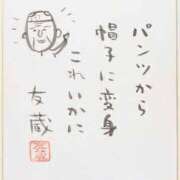 パンツから
帽子に変身
これいかに
友蔵